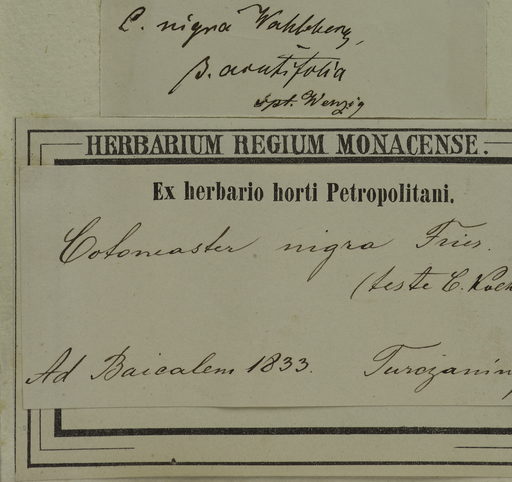 C. nigra Wahlberg,
β. acutifolia
spt. Wenzig
HERBARIUM REGIUM MONACENSE.
Ex herbario horti Petropolitani.
Cotoneaster nigra Fries.
(teste C. Koch
Ad Baicalem 1833. Turczanin